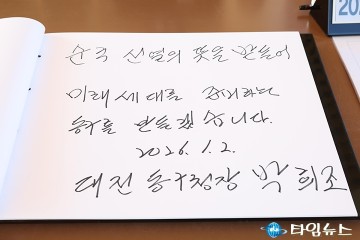 순국 선열의 뜻을 받들어
미래 세대를
동구를 만들겠습니다.
2026. 1. 2.
대전 동구청장 박희조
202
타임뉴스